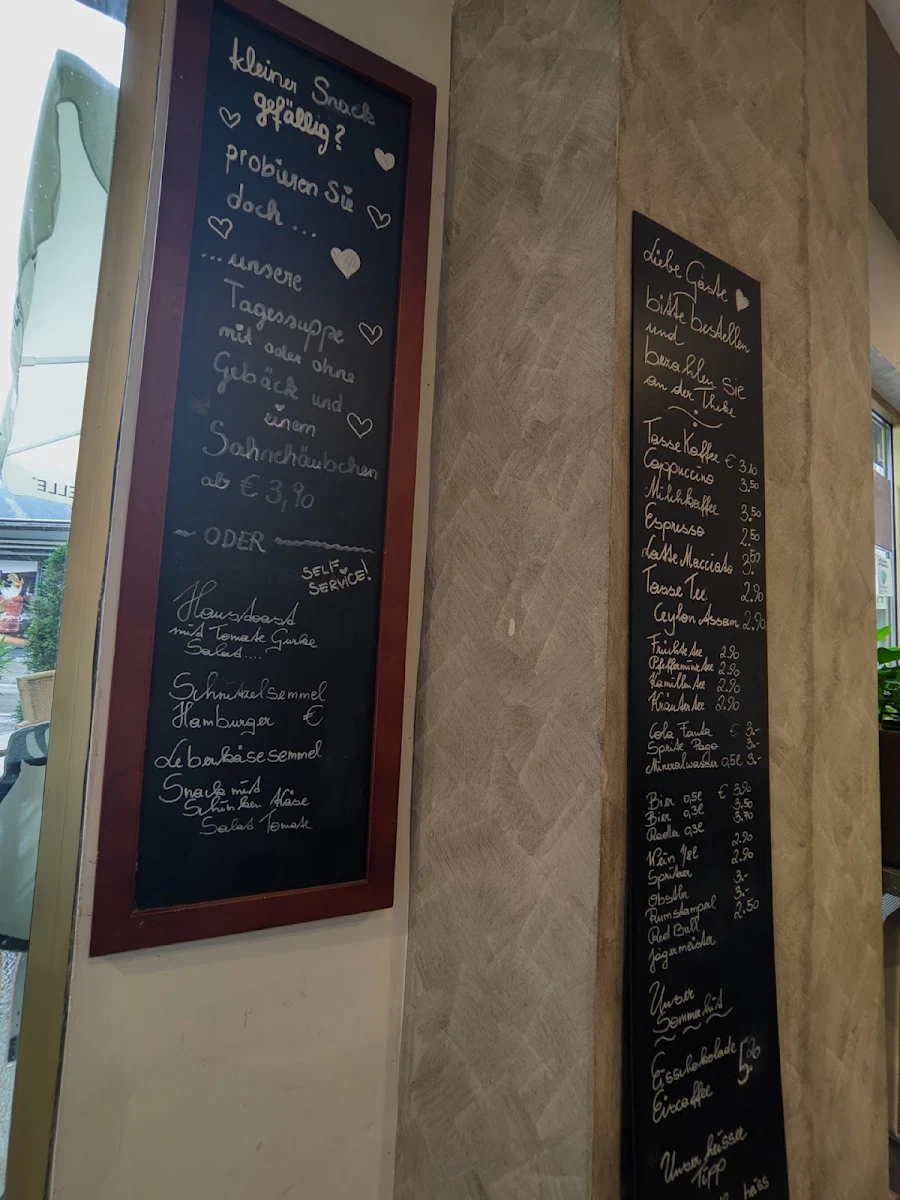 kleiner Snack
gefällig?
probieren Sie
doch ...
... unsere
Tagessuppe
mit oder ohne
Gebäck und
einem
Sahnehäubchen
ab € 3,90
ODER
SELF-
SERVICE!
Haustoast
mit Tomate Gurke
Salat....
Schnitzelsemmel
Hamburger €
Leberkäsesemmel
Snack mit
Schinken Käse
Salat Tomate
Liebe Gäste
bitte bestellen
und
bezahlen Sie
an der Theke
Tasse Kaffee € 3.10
Cappuccino 3.50
Milchkaffee 3.50
Espresso 2.50
Latte Macciato 3.50
Tasse Tee 2.90
Ceylon Assam 2.90
Früchte tee 2.90
Pfefferminz tee 2.90
Kamillen tee 2.90
Kräuter tee 2.90
Cola Fanta € 3.-
Sprite Pago 3.-
Mineralwasser 0,5l 3.-
Bier 0,5l € 3.90
Bier 0,3l 3.50
Radler 0,3l 3.70
Wein 1/8l 2.90
Spritzer 2.90
Obstler 3.-
Rumstamperl 3.-
Red Bull 2.50
Jägermeister
Unser
Sommerhit
Eisschokolade 5.20
Eiscaffee
Unser heisser
Tipp